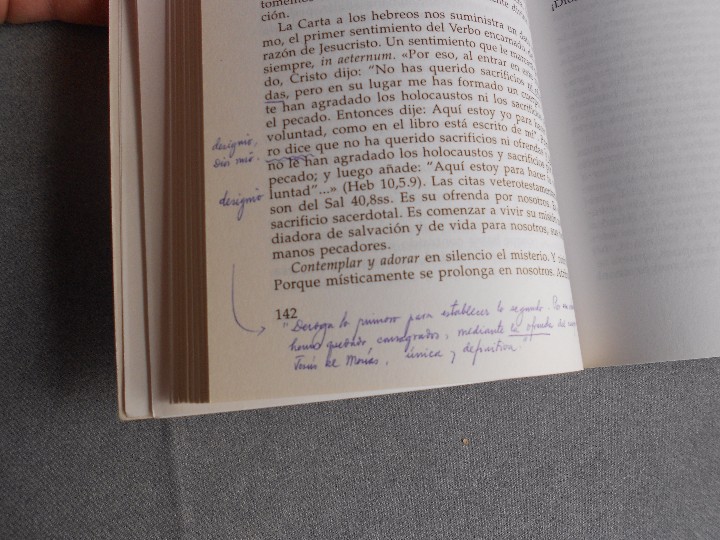 ción.
La Carta a los hebreos nos suministra un
mo, el primer sentimiento del Verbo encarnado
razón de Jesucristo. Un sentimiento que le
siempre, in aeternum. «Por eso, al entrar en este
do, Cristo dijo: "No has querido sacrificios ni
das, pero en su lugar me has formado un cuerpo
te han agradado los holocaustos ni los sacrificios
el pecado. Entonces dije: Aquí estoy yo para
voluntad, como en el libro está escrito de mí"
designio, Dios mío.
ro dice que no ha querido sacrificios ni ofrendas
no le han agradado los holocaustos y sacrificios
pecado; y luego añade: "Aquí estoy para hacer
designio
luntad"...» (Heb 10,5.9). Las citas veterotestamen
son del Sal 40,8ss. Es su ofrenda por nosotros.
sacrificio sacerdotal. Es comenzar a vivir su
diadora de salvación y de vida para nosotros,
manos pecadores.
Contemplar y adorar en silencio el misterio. Y
Porque místicamente se prolonga en nosotros.
142
"Deroga lo primero para establecer lo segundo.
hemos quedado consagrados, mediante la ofrenda del
única y definitiva.